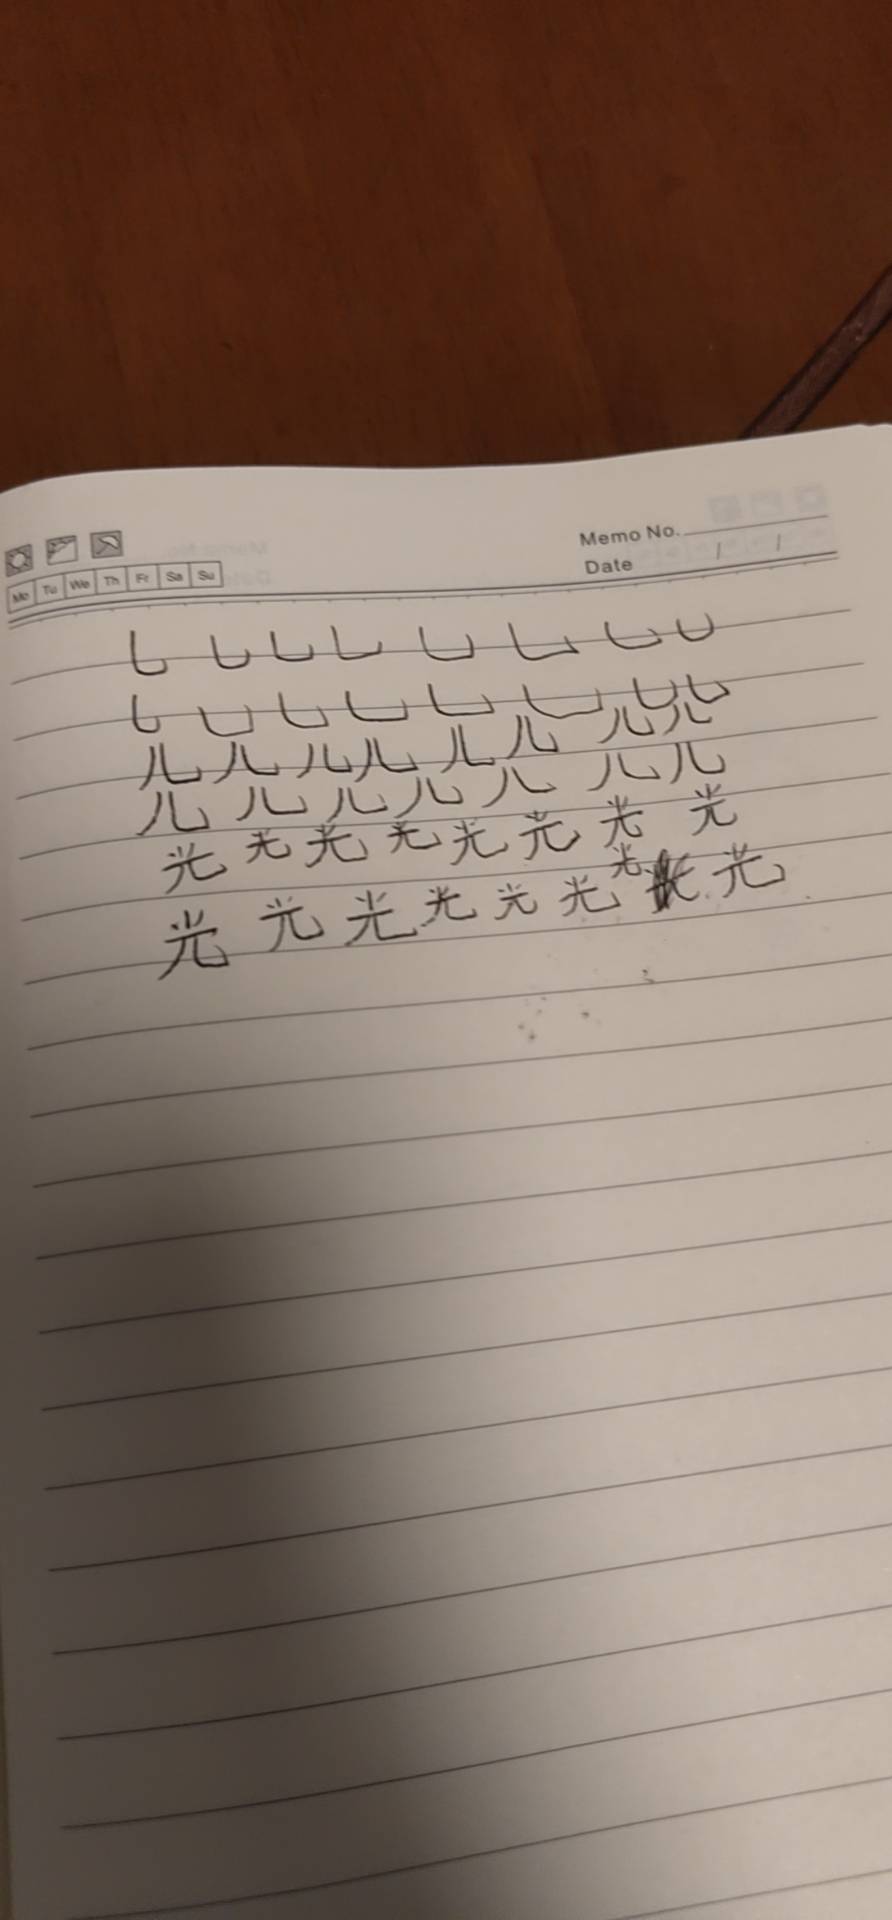 Memo No.
Mo Tu We Th Fr Sa Su
Date / /
乚 乚 乚 乚 乚 乚 乚 乚
乚 乚 乚 乚 乚 乚 乚 乚
儿 儿 儿 儿 儿 儿 儿 儿
儿 儿 儿 儿 儿 儿 儿 儿
光 光 光 光 光 光 光 光
光 光 光 光 光 光 光 光